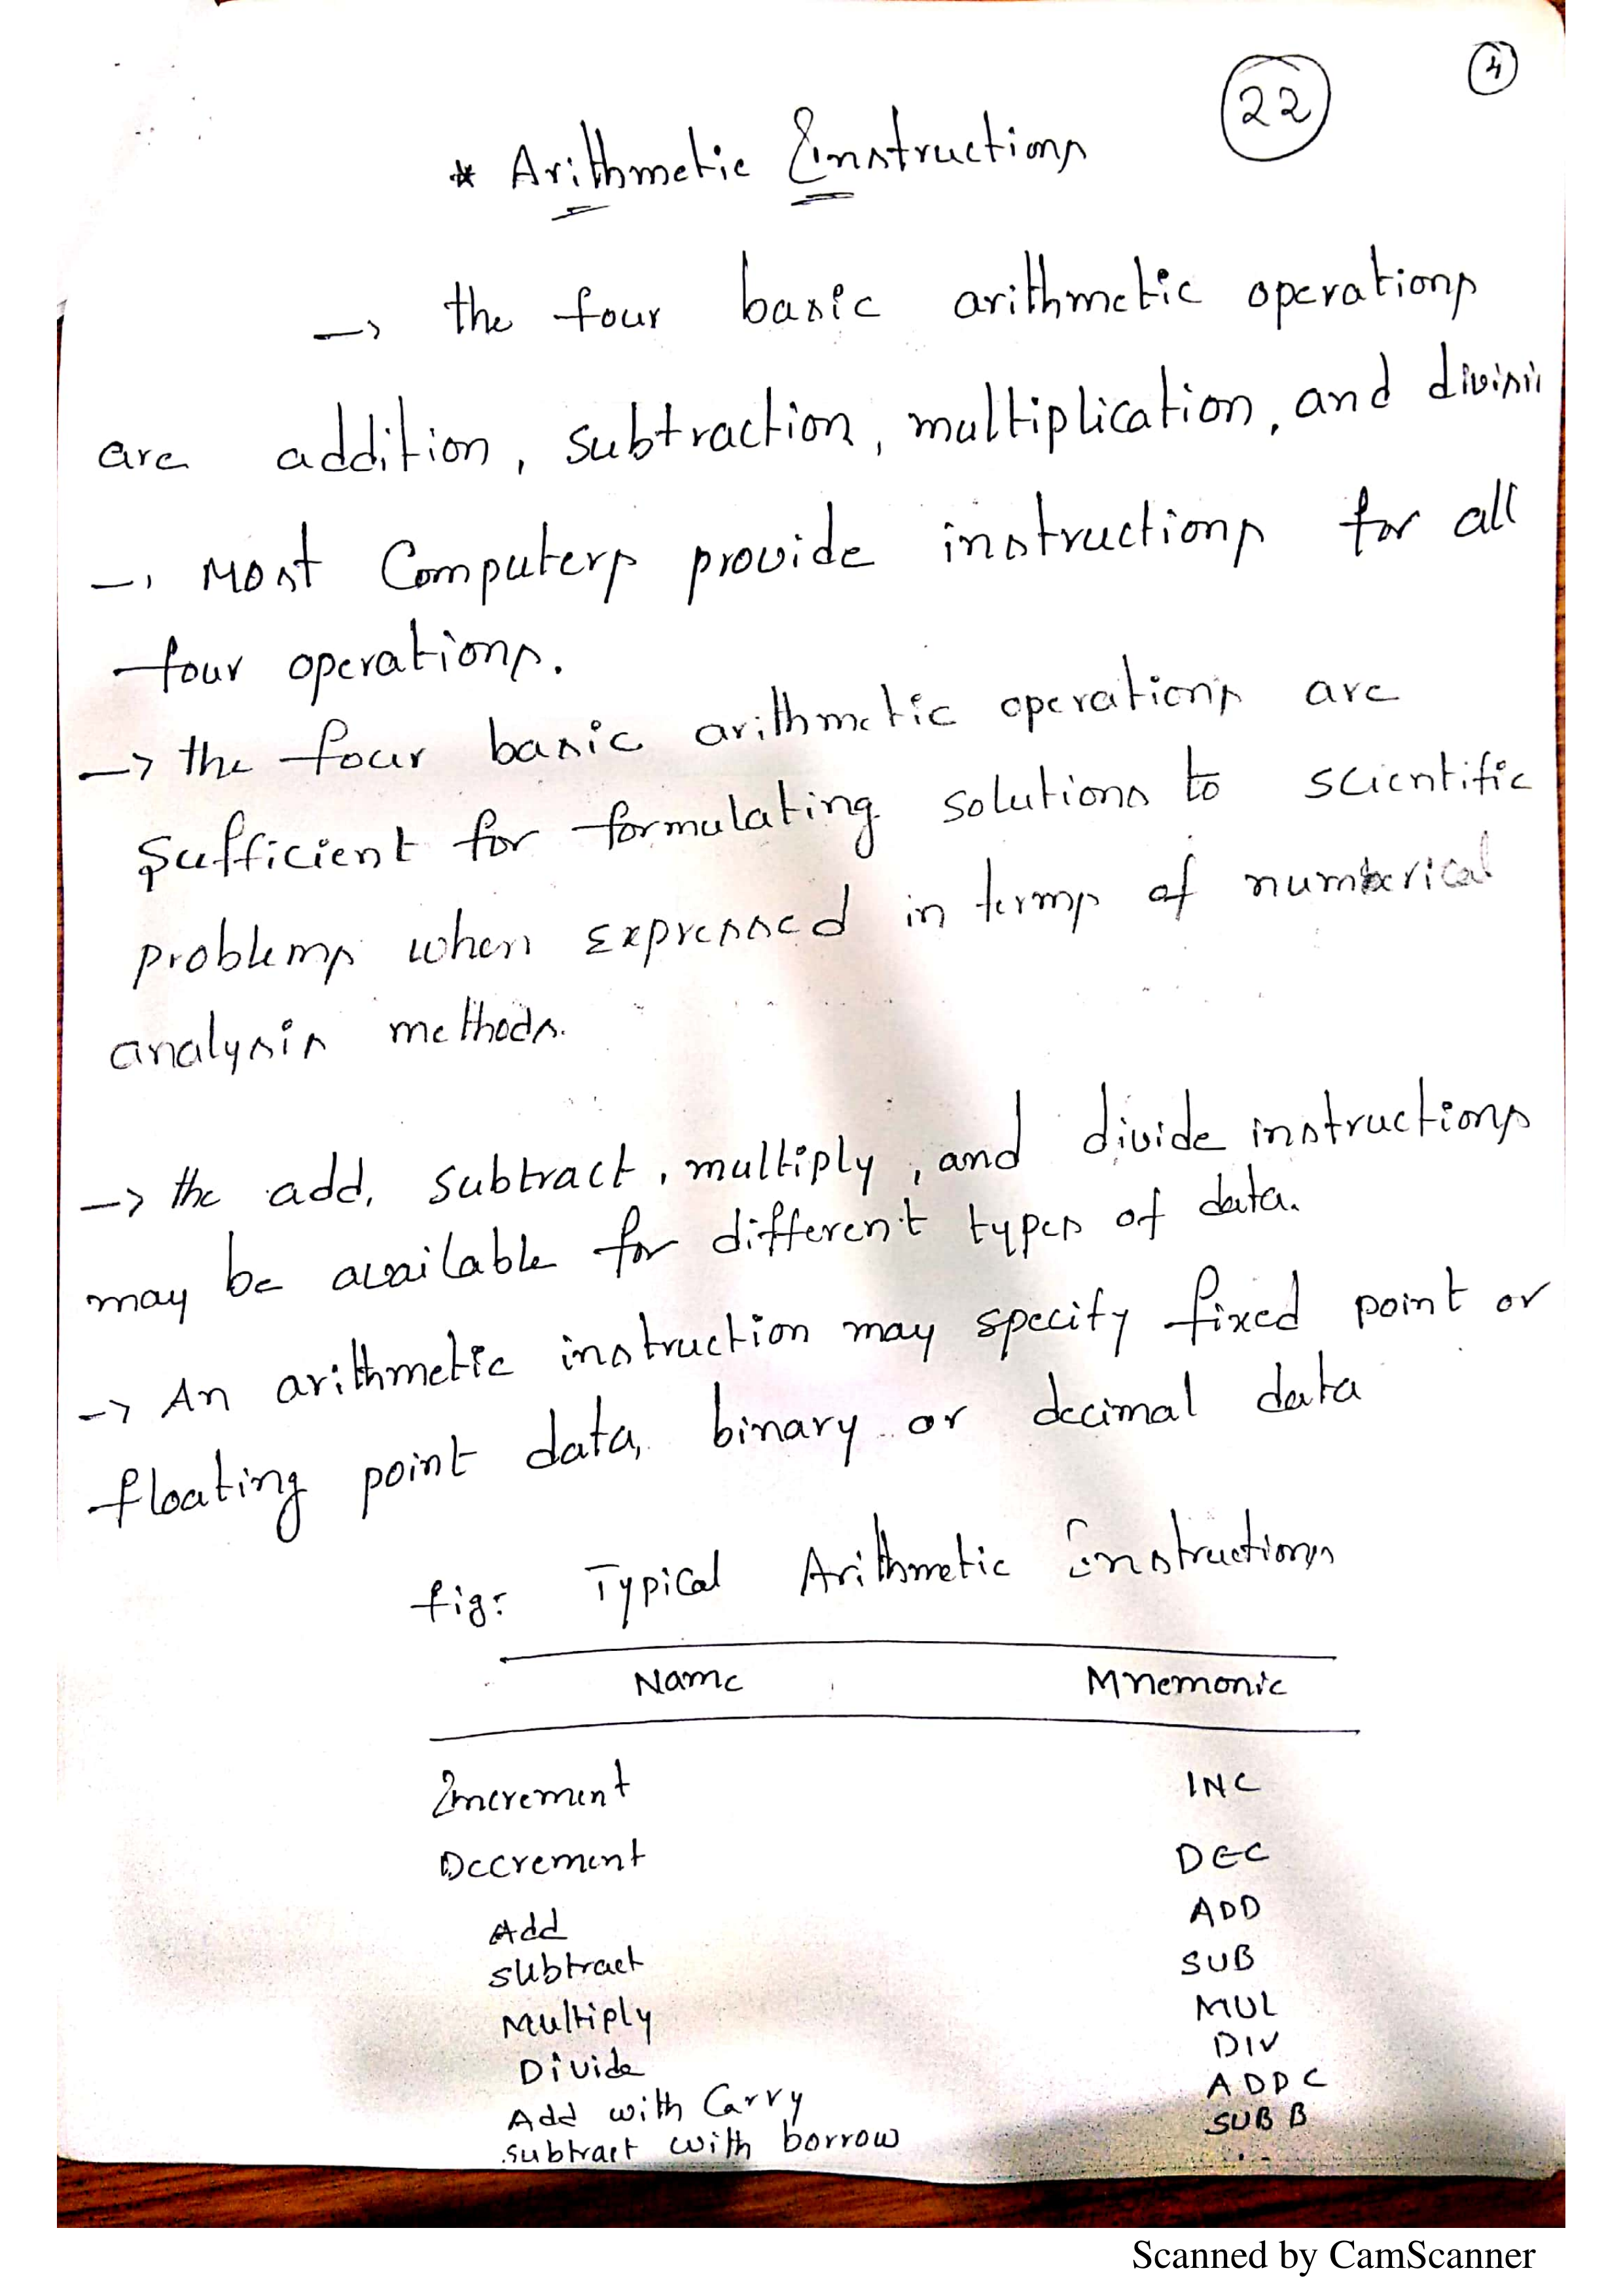 4
22
* Arithmetic Instructions
→ the four basic arithmetic operations
are addition, subtraction, multiplication, and
→ Most Computers provide instructions for all
four operations.
→ the four basic arithmetic operations are
sufficient for formulating solutions to scientific
problems when expressed in terms of numerical
analysis methods.
→ the add, subtract, multiply, and divide instructions
may be available for different types of data.
→ An arithmetic instruction may specify fixed point or
floating point data, binary or decimal data
fig: Typical Arithmetic Instructions
Name Mnemonic
Increment INC
Decrement DEC
Add ADD
subtract SUB
Multiply MUL
Divide DIV
Add with Carry ADDC
subtract with borrow SUBB
Scanned by CamScanner